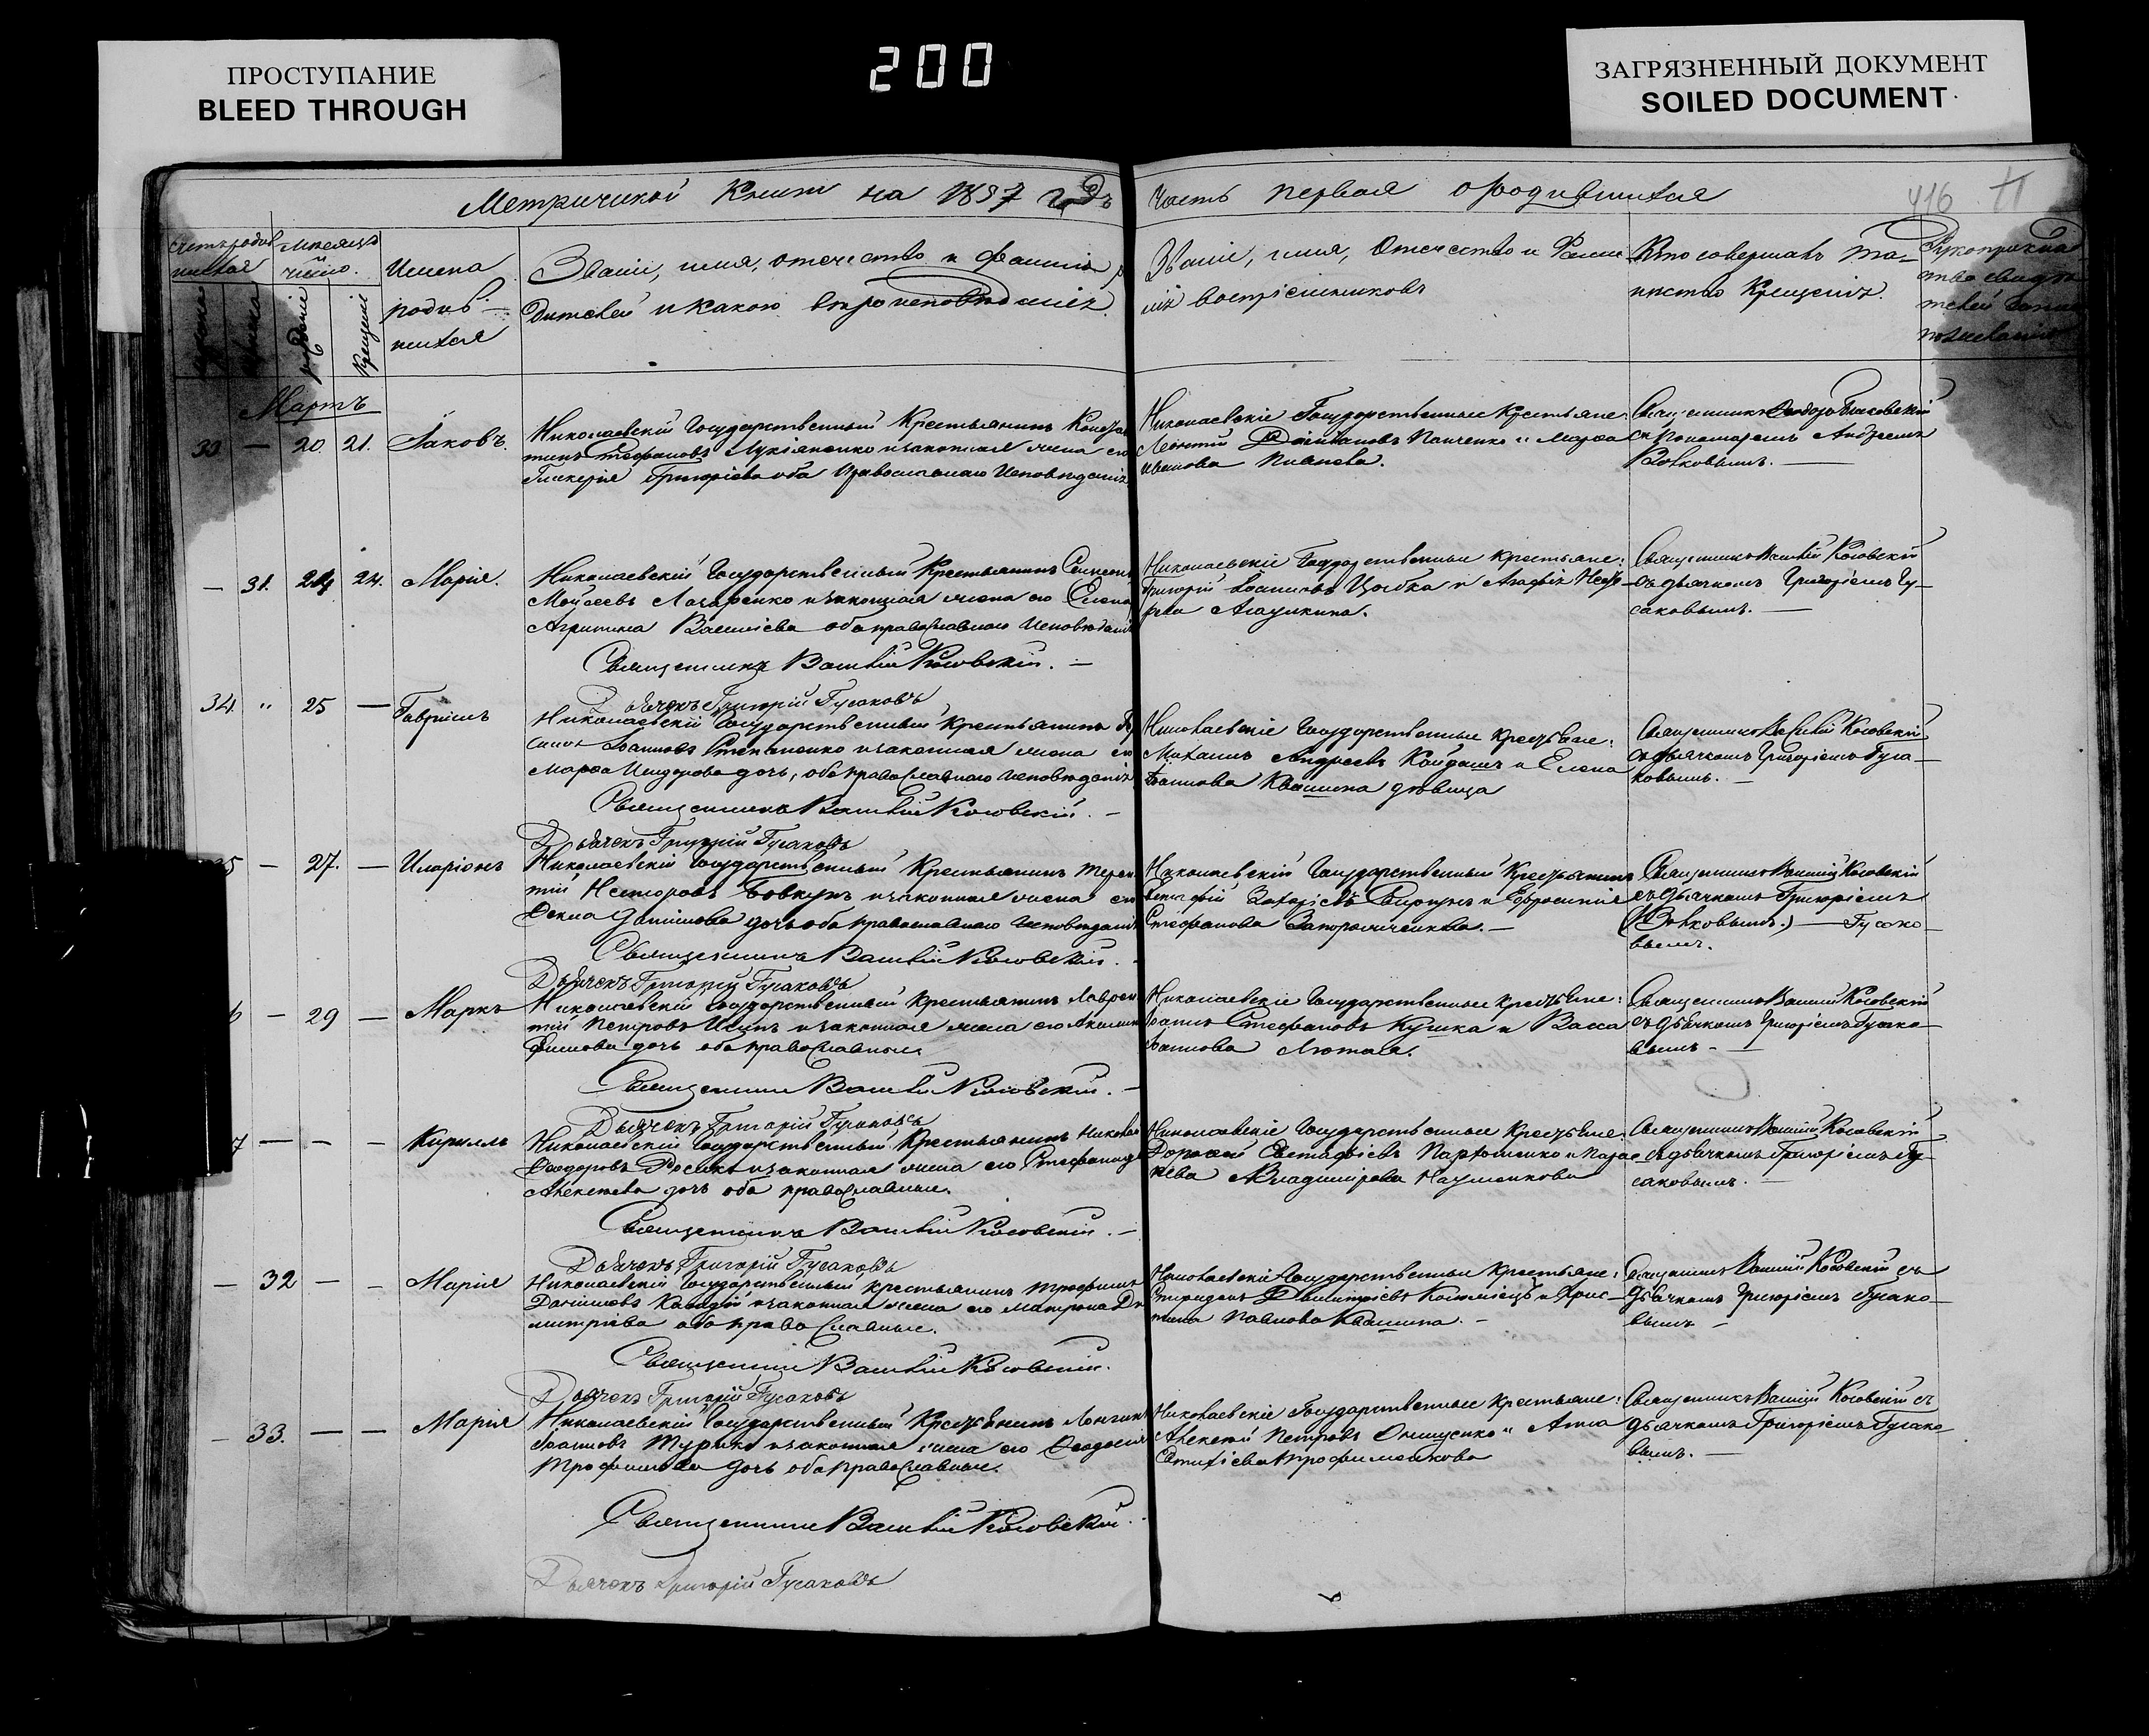 ПРОСТУПАНИЕ
BLEED THROUGH
200
ЗАГРЯЗНЕННЫЙ ДОКУМЕНТ
SOILED DOCUMENT
Метрической Книги на 1857 годъ
Часть первая о родившихся
416
Месяцъ
и
число.
Имена
родив-
шихся
Званіе, имя, отечество и фамилія ро
дителей и какого вѣроисповѣданія.
Званіе, имя, Отечество и Фами
лія воспріемниковъ
Кто совершалъ та-
инство Крещенія.
Мартъ
33 — 20. 21. Іаковъ.
Николаевскій Государственный Крестьянинъ Конста
тинъ Стефановъ Лукіяненко и законная жена его
Гликерія Григоріева оба Православнаго Исповѣданія
Николаевскіе Государственные Крестьяне:
Леонтій Панченко и Марѳа
Иванова
съ Пономаремъ Андреемъ
Волковымъ. —
— 31. 24 24. Марія.
Николаевскій Государственный Крестьянинъ Семеонъ
Моѵсеевъ Лазаренко и законная жена его
Агрипина Василіева оба православнаго Исповѣданія
Священникъ Василій Косовскій. —
Николаевскіе Государственные крестьяне:
Григорій Іоанновъ Цыбка и Агафія
Священникъ Василій Косовскій
съ дьячкомъ Григоріемъ Гу-
саковымъ. —
34. " 25 — Гавріилъ
Дьячекъ Григорій Гусаковъ
Николаевскій Государственный Крестьянинъ
Іоанновъ Степаненко и законная жена его
Марѳа Исидорова дочь, оба православнаго исповѣданія
Священникъ Василій Косовскій. —
Николаевскіе Государственные крестьяне:
Михаилъ Андреевъ Кайдашъ и Елена
Іоаннова Квашина дѣвица
Священникъ Василій Косовскій
съ дьячкомъ Григоріемъ Гуса-
ковымъ. —
5 — 27. — Иларіонъ
Дьячекъ Григорій Гусаковъ
Николаевскій Государственный Крестьянинъ Терен
тій Несторовъ Бовкунъ и законная жена его
Даніилова дочь оба православнаго исповѣданія
Священникъ Василій Косовскій.
Николаевскій Государственный Крестьянинъ
Захаріевъ и Ефросинія
Стефанова
Священникъ Василій Косовскій
съ дьячкомъ Григоріемъ
(Волковымъ.) — Гусако-
вымъ.
6 — 29 — Маркъ
Дьячекъ Григорій Гусаковъ
Николаевскій Государственный Крестьянинъ Лаврен
тій Петровъ и законная жена его
дочь оба православные
Священникъ Василій Косовскій. —
Николаевскіе Государственные крестьяне:
Іоаннъ Стефановъ Кушка и Васса
Іоаннова Лютая.
Священникъ Василій Косовскій
съ дьячкомъ Григоріемъ Гусако-
вымъ —
7 — — — Кириллъ
Дьячекъ Григорій Гусаковъ
Николаевскій Государственный Крестьянинъ Николай
Ѳеодоровъ и законная жена его Стефанида
Алексѣева дочь оба православные.
Священникъ Василій Косовскій. —
Николаевскіе Государственные крестьяне:
Дороѳей Евстафіевъ Пархоменко и
Владимірова Науменкова
Священникъ Василій Косовскій
съ дьячкомъ Григоріемъ Гу-
саковымъ. —
— 32 — — Марія
Дьячекъ Григорій Гусаковъ
Николаевскій Государственный крестьянинъ Трофимъ
Даніиловъ и законная жена его Матрона Ди
митріева оба православные.
Священникъ Василій Косовскій.
Николаевскіе Государственные Крестьяне:
Спиридонъ Димитріевъ и Хрис-
тина Павлова Квашина. —
Священникъ Василій Косовскій съ
дьячкомъ Григоріемъ Гусако-
вымъ —
— 33. — — Марія
Дьячекъ Григорій Гусаковъ
Николаевскій Государственный Крестьянинъ Лонгинъ
Іоанновъ Турико и законная жена его Ѳеодосія
Трофимова дочь оба православные.
Священникъ Василій Косовскій.
Николаевскіе Государственные Крестьяне:
Алексѣй Петровъ Онищенко и Анна
Трофименкова
Священникъ Василій Косовскій съ
дьячкомъ Григоріемъ Гусако-
вымъ. —
Дьячекъ Григорій Гусаковъ